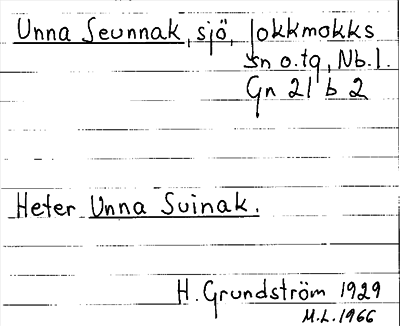 Unna Seunnak, sjö, Jokkmokks
sn o. tg, Nb. l.
Gn 21 b 2
Heter Unna Suinak.
H. Grundström 1929
M.L. 1966